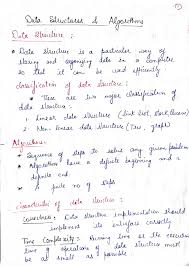 Data Structures & Algorithms
Data Structure :
Data structure is a particular way of
storing and organizing data in a computer
so that it can be used efficiently
classification of data structure :
There are two major classification of
data structure :
1. Linear data structure (link list, stack, queue)
2. Non-linear data structure (Tree, graph)
Algorithms :
Sequence of steps to solve any given problem
Algorithms have a definite beginning and a
definite end
a finite no of steps
Characteristics of data structure :
Correctness : Data structure implementation should
implement its interface correctly
Time Complexity : Running time or the execution
time of operations of data structure must be
as small as possible